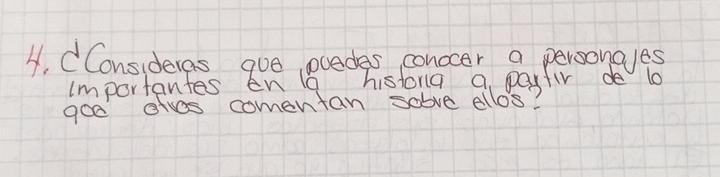 4. ¿Consideras que puedes conocer a personajes
importantes en la historia a partir de lo
que otros comentan sobre ellos?